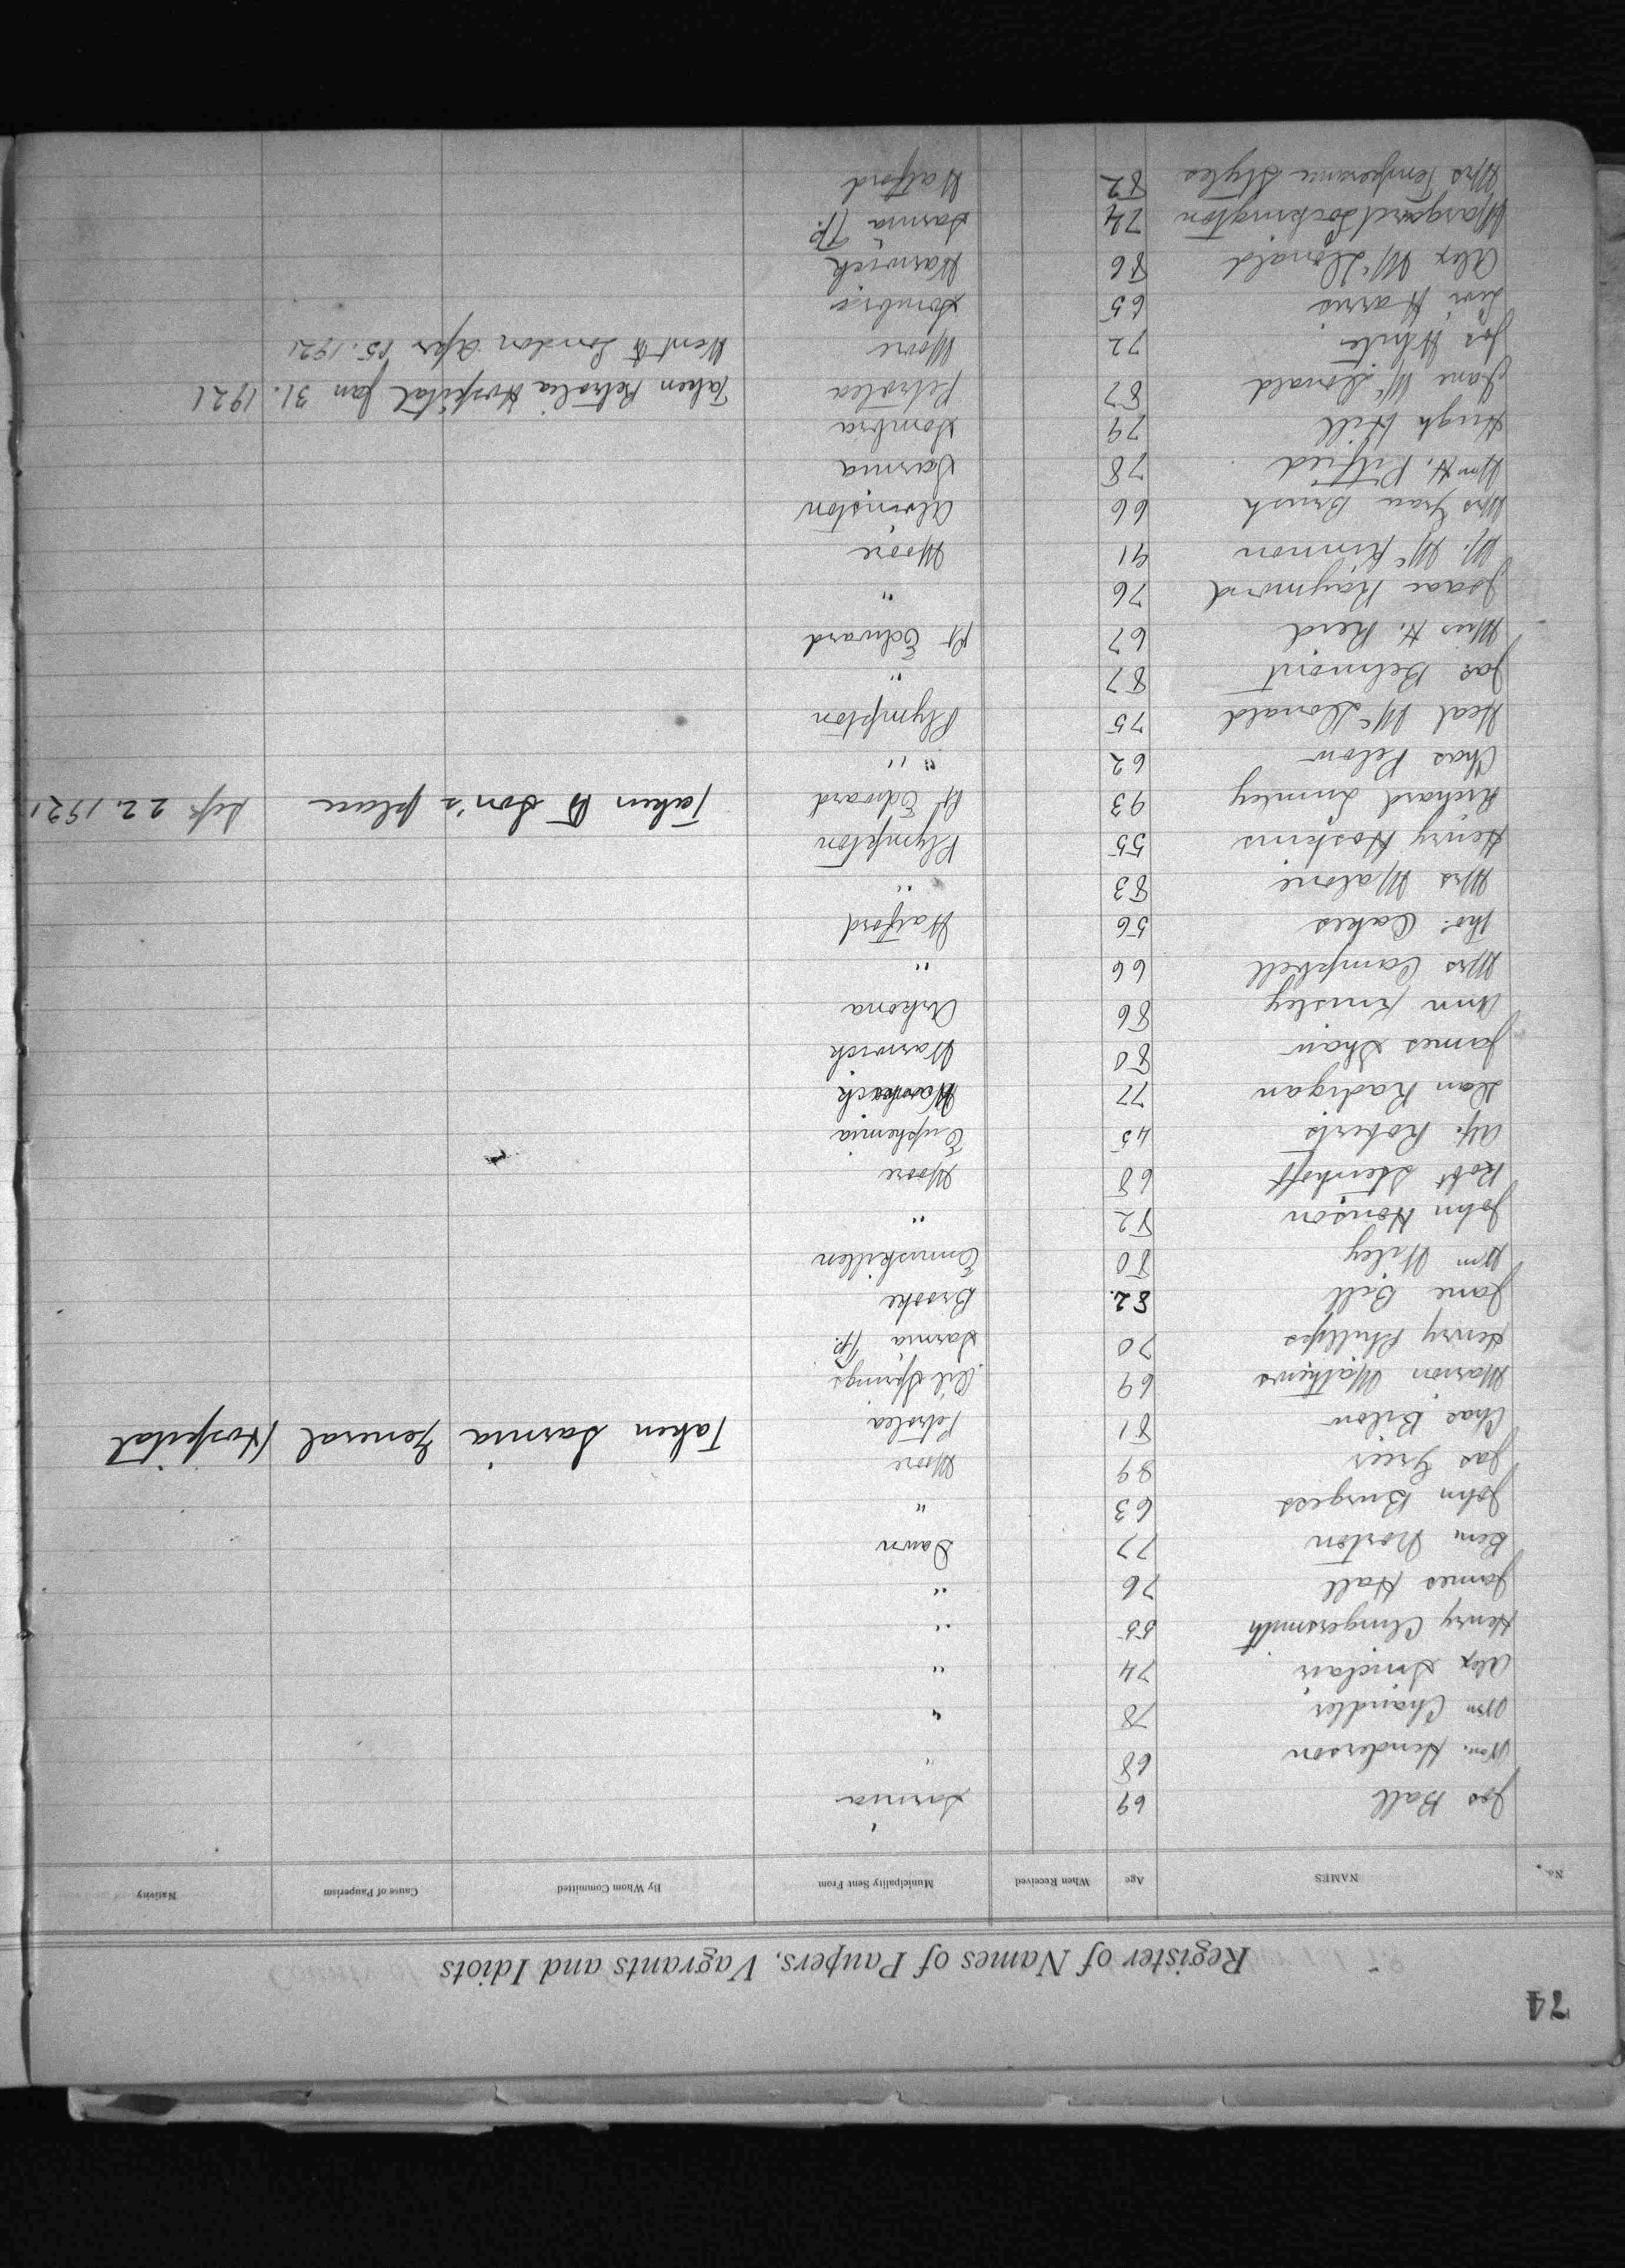 74
Register of Names of Paupers, Vagrants and Idiots
No. NAMES Age When Received Municipality Sent From By Whom Committed Cause of Pauperism Nativity
Jos Ball 69 Sarnia
Wm. Henderson 68 "
Wm Chandler 78 "
Alex Sinclair 74 "
Henry Clingersmith 55 "
James Hall 76 "
Benj Norton 77 Dawn
John Burgess 63 "
Jas Grier 89 Moore
Chas Bilow 81 Petrolea Taken Sarnia General Hospital
Marion Mathews 69 Oil Springs
Henry Phillips 70 Sarnia Tp.
Jane Bell 82 Brooke
Wm Wiley 80 Enniskillen
John Honison 82 "
Robt Stenhoff 68 Moore
Alf. Roberts 45 Euphemia
Dan Radigan 77 Warwick
James Shaw 80 Warwick
Ann Kinsley 86 Arkona
Mrs Campbell 66 "
Thos. Oakes 56 Watford
Mrs Malone 83 "
Henry Hoskins 55 Plympton
Richard Lumley 93 Pt Edward Taken to Son's place Sep 22, 1921
Chas Pelow 62 " "
Neal McDonald 75 Plympton
Jas Belmont 87 "
Miss H. Reid 67 Pt Edward
Isaac Raymord 76 "
M. McKinnon 41 Moore
Mrs Grace Brush 66 Alvinston
Wm H. Pitfied 78 Sarnia
Hugh Hill 79 Sombra
Jane McDonald 87 Petrolea Taken Petrolia Hospital Jan 31. 1921
Jos White 72 Moore Went to London Apr 15. 1921
Levi Harris 65 Sombra
Alex McDonald 86 Warwick
Margaret Lockington 74 Sarnia Tp.
Mrs Temperance Styles 82 Watford